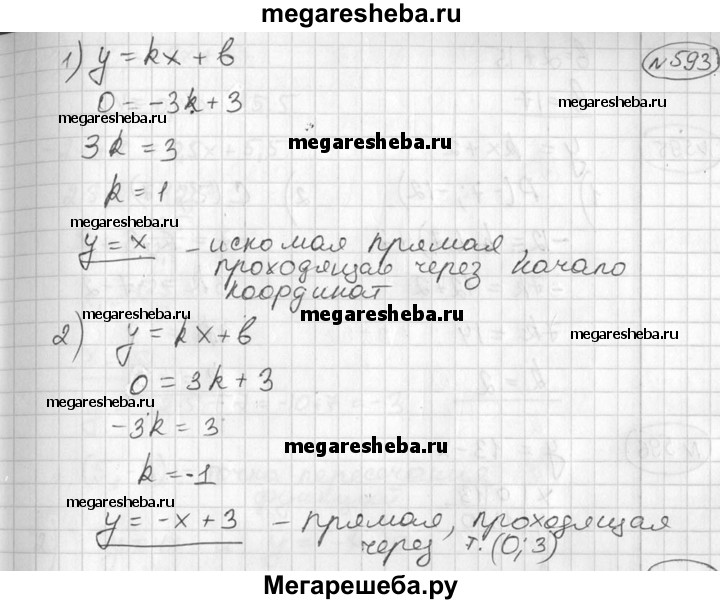 megaresheba.ru
N 593
1) y = kx + b
0 = -3k + 3
megaresheba.ru
megaresheba.ru
3k = 3
k = 1
megaresheba.ru
y = x - искомая прямая,
проходящая через начало
координат
megaresheba.ru
2) y = kx + b
megaresheba.ru
0 = 3k + 3
megaresheba.ru
-3k = 3
megaresheba.ru
k = -1
megaresheba.ru
y = -x + 3 - прямая, проходящая
через т. (0; 3)
Мегарешеба.ру